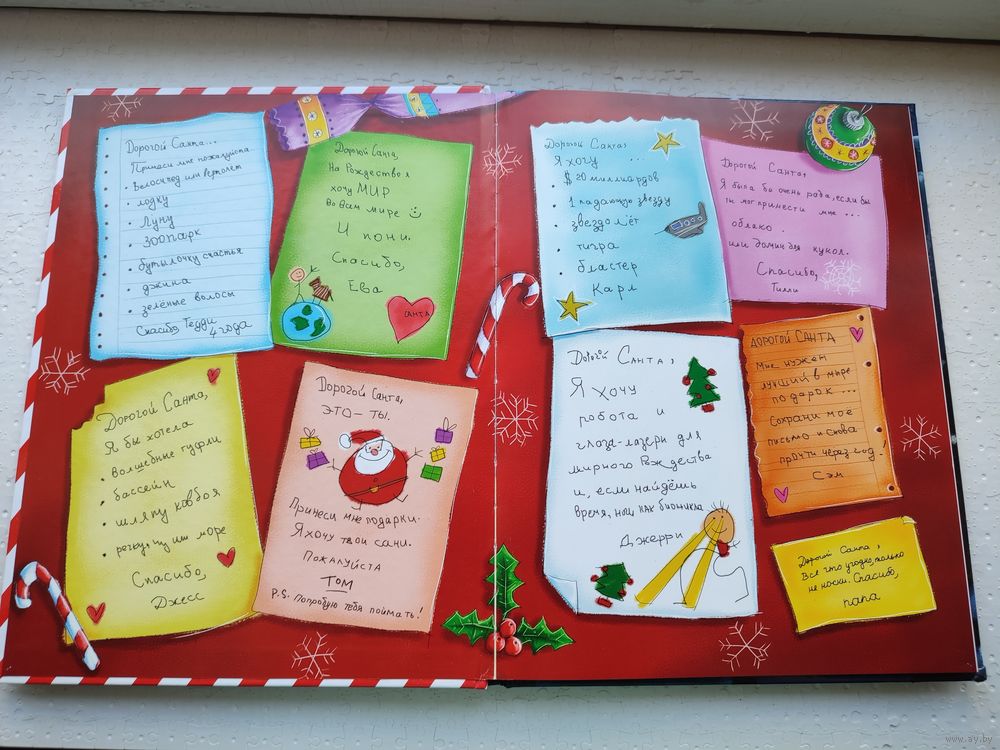 Дорогой Санта...
Принеси мне пожалуйста
• велосипед или вертолет
• лодку
• Луну
• зоопарк
• бутылочку счастья
• джина
• зелёные волосы
Спасибо Тедди
4 года
Дорогой Санта,
На Рождество я
хочу МИР
во всём мире
И пони.
Спасибо,
Ева
САНТА
Дорогой Санта,
Я бы хотела
• волшебные туфли
• бассейн
• шляпу ковбоя
• речку или море
Спасибо,
Джесс
Дорогой Санта,
ЭТО - ТЫ.
Принеси мне подарки.
Я хочу твои сани.
Пожалуйста
ТОМ
P.S. Попробую тебя поймать!
Дорогой Санта,
Я хочу ...
• $ 20 миллиардов
• 1 падающую звезду
• звездолёт
• тигра
• бластер
Карл
Дорогой Санта,
Я была бы очень рада, если бы
ты мог принести мне ...
облако
или домик для кукол.
Спасибо,
Тилли
Дорогой Санта,
Я хочу
робота и
глаза-лазеры для
мирного Рождества
и, если найдёшь
время, ноги как бионика
Джерри
ДОРОГОЙ САНТА
Мне нужен
лучший в мире
подарок...
Сохрани моё
письмо и снова
прочти через год!
Сэм
Дорогой Санта,
Всё что угодно, только
не носки. Спасибо,
папа
www.ay.by